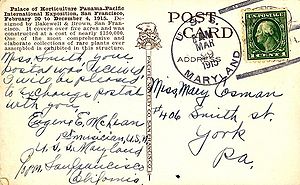 Palace of Horticulture Panama-Pacific
International Exposition, San Francisco,
February 20 to December 4, 1915. De-
signed by Bakewell & Brown, San Fran-
cisco covers over five acres and was
constructed at a cost of nearly $150,000.
One of the most comprehensive and
elaborate collections of rare plants ever
assembled is exhibited in this structure.
Miss Smith your
postal was received
I will be pleased
to exchange postal
with you
Eugene E. McLean
Musician, U.S.N
U.S.S. Maryland
from San Francisco
California.
POST
CARD
ADDRESS
U.S.
MAR
1915
MARYLAND
Miss Mary Osman
#406 Smith St.
York
Pa.